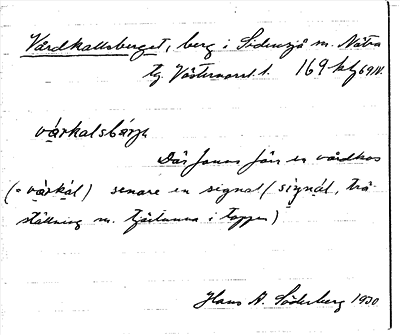 Vårdkallsberget, berg i Sidensjö sn. Nätra
tg. Västernorrl. l. 169
vårkalsbärje
Där fanns förr en vårdkas
(= vårkál) senare en signal (signál, trä-
ställning m. tjärtunna i toppen)
Hans A. Söderberg 1930